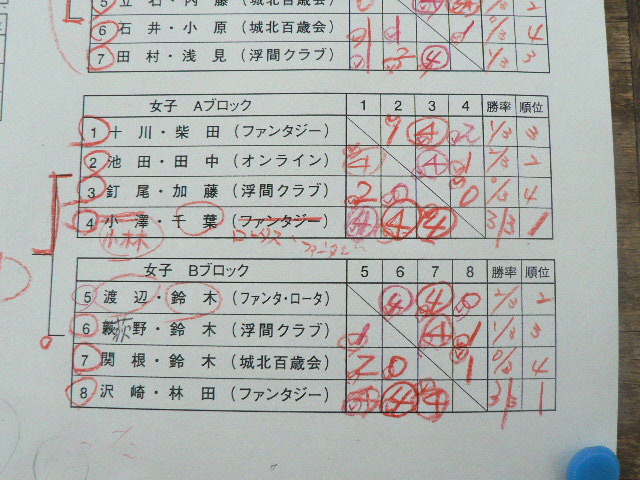 5 立石・内藤(城北百歳会) 2
6 石井・小原(城北百歳会) 1 1 0/3 4
7 田村・浅見(浮間クラブ) 1 2 ④ 1/3 3
女子 Aブロック 1 2 3 4 勝率 順位
1 十川・柴田(ファンタジー) ④ 1/3 3
2 池田・田中(オンライン) ④ ④ 1 2/3 2
3 釘尾・加藤(浮間クラブ) 2 0 0 0/3 4
4 小澤・千葉(ファンタジー) ④ ④ ④ 3/3 1
小林
女子 Bブロック 5 6 7 8 勝率 順位
5 渡辺・鈴木(ファンタ・ロータ) ④ ④ 0 2/3 2
6 野・鈴木(浮間クラブ) 1 ④ 1 1/3 3
7 関根・鈴木(城北百歳会) 2 0 1 0/3 4
8 沢崎・林田(ファンタジー) ④ ④ ④ 3/3 1